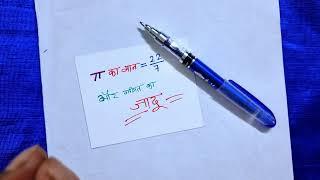 π का मान = 22/7
और गणित का
जादू